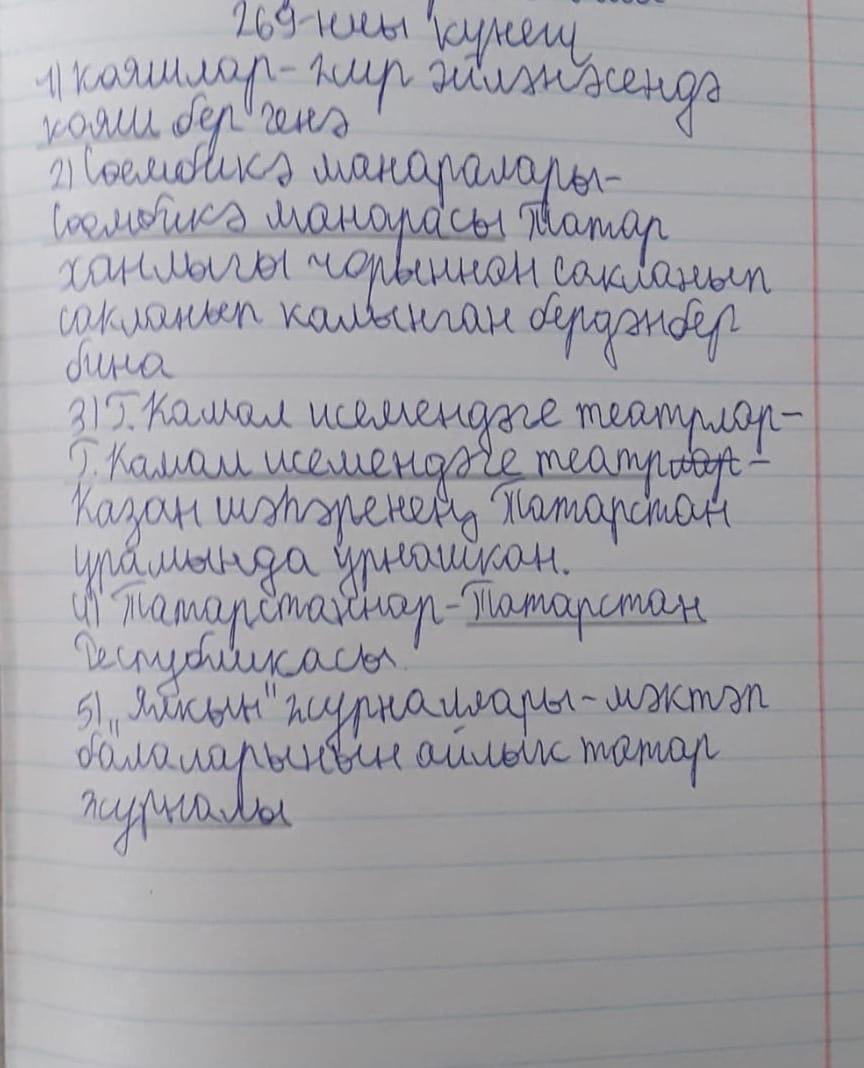 269-нчы күнегү
1) кояшлар - җир әйләнәсендә
кояш бер генә
2) Сөембикә манаралары-
Сөембикә манарасы Татар
ханлыгы чорыннан сакланып
сакланып калынган бердәнбер
бина
3) Г. Камал исемендәге театрлар-
Г. Камал исемендәге театрлар-
Казан шәһәренең Татарстан
урамында урнашкан.
4) Татарстаннар-Татарстан
Республикасы
5) „Ялкын" журналлары-мәктәп
балаларынын айлык татар
журналы